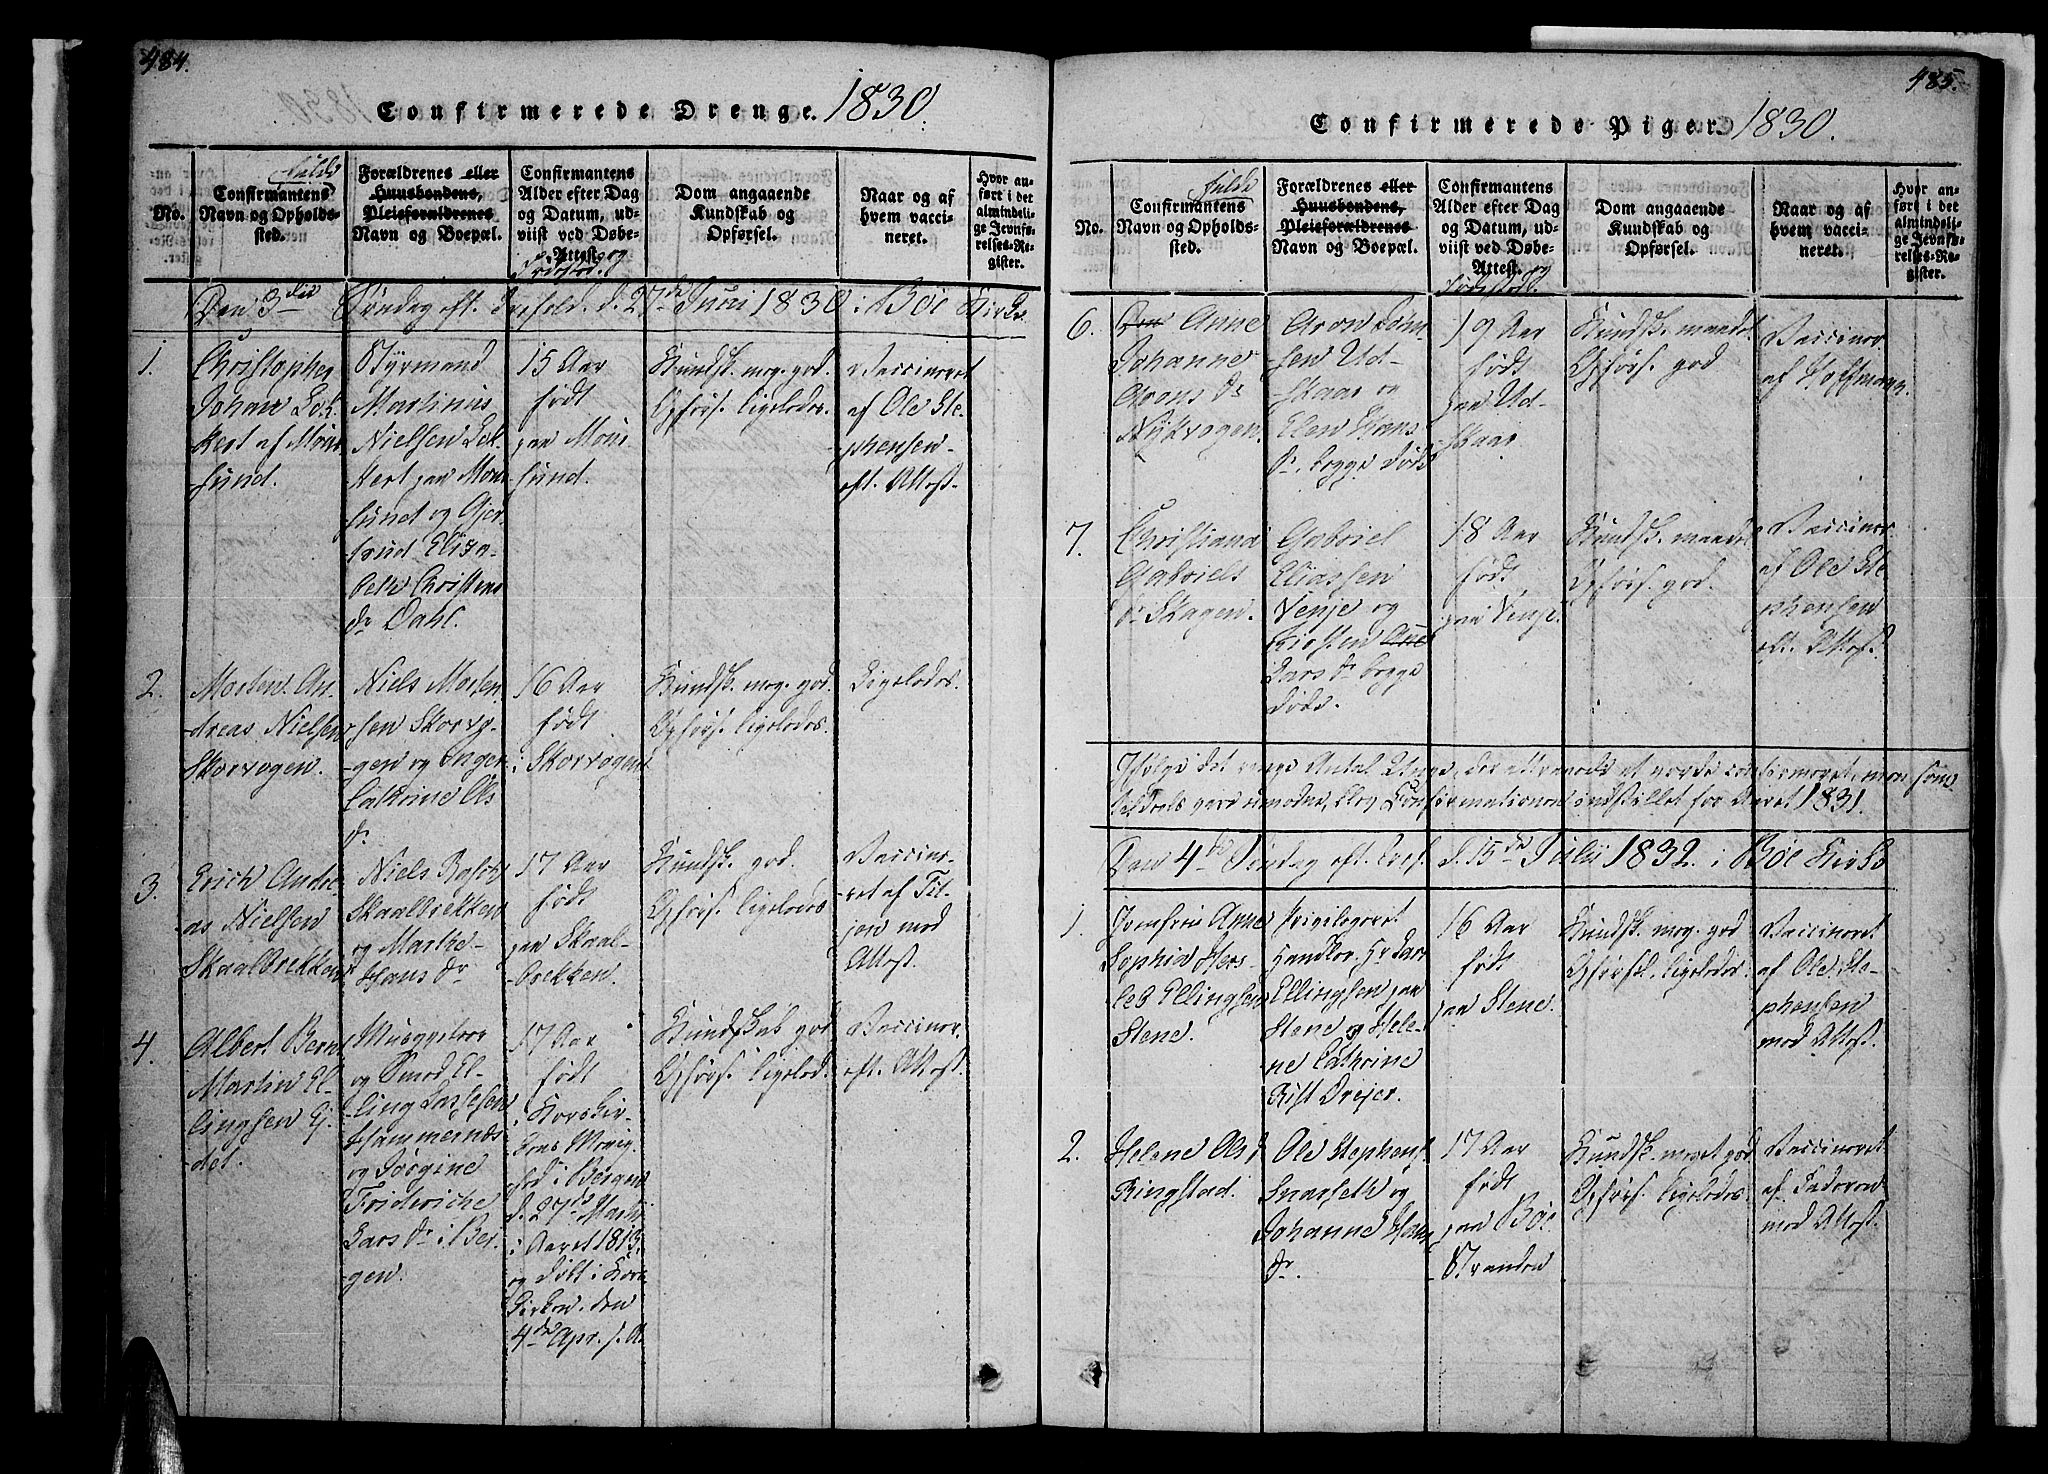 484.
Confirmerede Drenge. 1830.
No.
fulde
Confirmantens
Navn og Opholds-
sted.
Forældrenes eller
Huusbondens,
Pleieforældrenes
Navn og Boepæl.
Confirmantens
Alder efter Dag
og Datum, ud-
viist ved Døbe-
Attest. og
Fødested.
Dom angaaende
Kundskab og
Opførsel.
Naar og af
hvem vacci-
neret.
Hvor an-
ført i det
almindeli-
ge Jevnfø-
relses-Re-
gister.
Den 3die Søndag eft. Trefold. d. 27de Juni 1830 i Bøe Kirke
1.
Christopher
Johan Lok-
kert af
sund.
Styrmand
Martinus
Nielsen Lok-
kert paa
sund og Gjer-
trud Elisa-
beth Christens
Dr Dahl.
15 Aar
født
paa
sund.
Kundsk. meg. god.
Opførs. ligeledes.
Vaccineret
af Ole Ste-
phensen
eft. Attest.
2.
Morten An-
dreas Nielsen
Skorvogen.
Niels Morten-
sen Skorvo-
gen og Inger
Cathrine Ols
Dr
16 Aar
født
i Skorvogen
Kundsk. meg. god.
Opførs. ligeledes.
Ligeledes.
3.
Erich Andre-
as Nielsen
Skaalbrekken
Niels
Skaalbrekken
og Marthe
Hans Dr
17 Aar
født
paa Skaal-
brekken.
Kundsk. god.
Opførs. ligeledes
Vaccine-
ret af Til-
jen med
Attest.
4.
Albert Bern.
Martin El-
lingsen Ei-
det.
og Smed El-
ling Lassesen
Hammernæs
og Sørgine
Frideriche
Lars Dr i Ber-
gen.
17 Aar
født
i Korskir-
kens Menig-
hed i Bergen
d. 27de Marti
i Aaret 1813.
og døbt i Kors-
kirken den
4de Apr. s. A.
Kundskab god
Opførs. ligeled.
Vacciner.
eft. Attest.
485.
Confirmerede Piger. 1830.
No.
fulde
Confirmantens
Navn og Opholds-
sted.
Forældrenes eller
Huusbondens,
Pleieforældrenes
Navn og Boepæl.
Confirmantens
Alder efter Dag
og Datum, ud-
viist ved Døbe-
Attest. og
Fødested.
Dom angaaende
Kundskab og
Opførsel.
Naar og af
hvem vacci-
neret.
Hvor an-
ført i det
almindeli-
ge Jevnfø-
relses-Re-
gister.
6.
Anne
Johanne
Arons Dr
Nykvogen.
Aron
sen Ud-
skaar og
Elen Hans
Dr, begge døde
19 Aar
født
paa Ud-
skaar
Kundsk. maadel.
Opførs. god
Vacciner.
af Hoffmann.
7.
Christiana
Gabriels
Dr Skagen.
Gabriel
Eliassen
Venje og
Kirsten Ane
Lars Dr begge
døde.
18 Aar
født
paa Venje.
Kundsk. maadel.
Opførs. god.
Vacciner.
af Ole Ste
phensen
eft. Attest.
Ifølge det ringe Antal Unge, der attraaede at vorde confirmeret, men som
befandtes umodne, blev Confirmationen indstillet for Aaret 1831.
Den 4de Søndag eft. Tref. d. 15de Julii 1832. i Bøe Kirke
1.
Jomfrue Anne
Sophia Hers-
leb Ellingsen
Stene.
Privilegeret
Handler Hr Lars
Ellingsen paa
Stene og Hele-
ne Cathrine
Rist Drejer.
16 Aar
født
paa Stene.
Kundsk. meg. god
Opførsl. ligeledes.
Vaccineret
af Ole Ste-
phensen
med Attest.
2.
Helene Ols D
Ringstad.
Ole Stephens.
Snarseth og
Johanne Hans
Dr.
17 Aar
født
paa Bøe
Stranden
Kundsk. meget god
Opførs. ligeledes.
Vaccineret
af
med Attest.